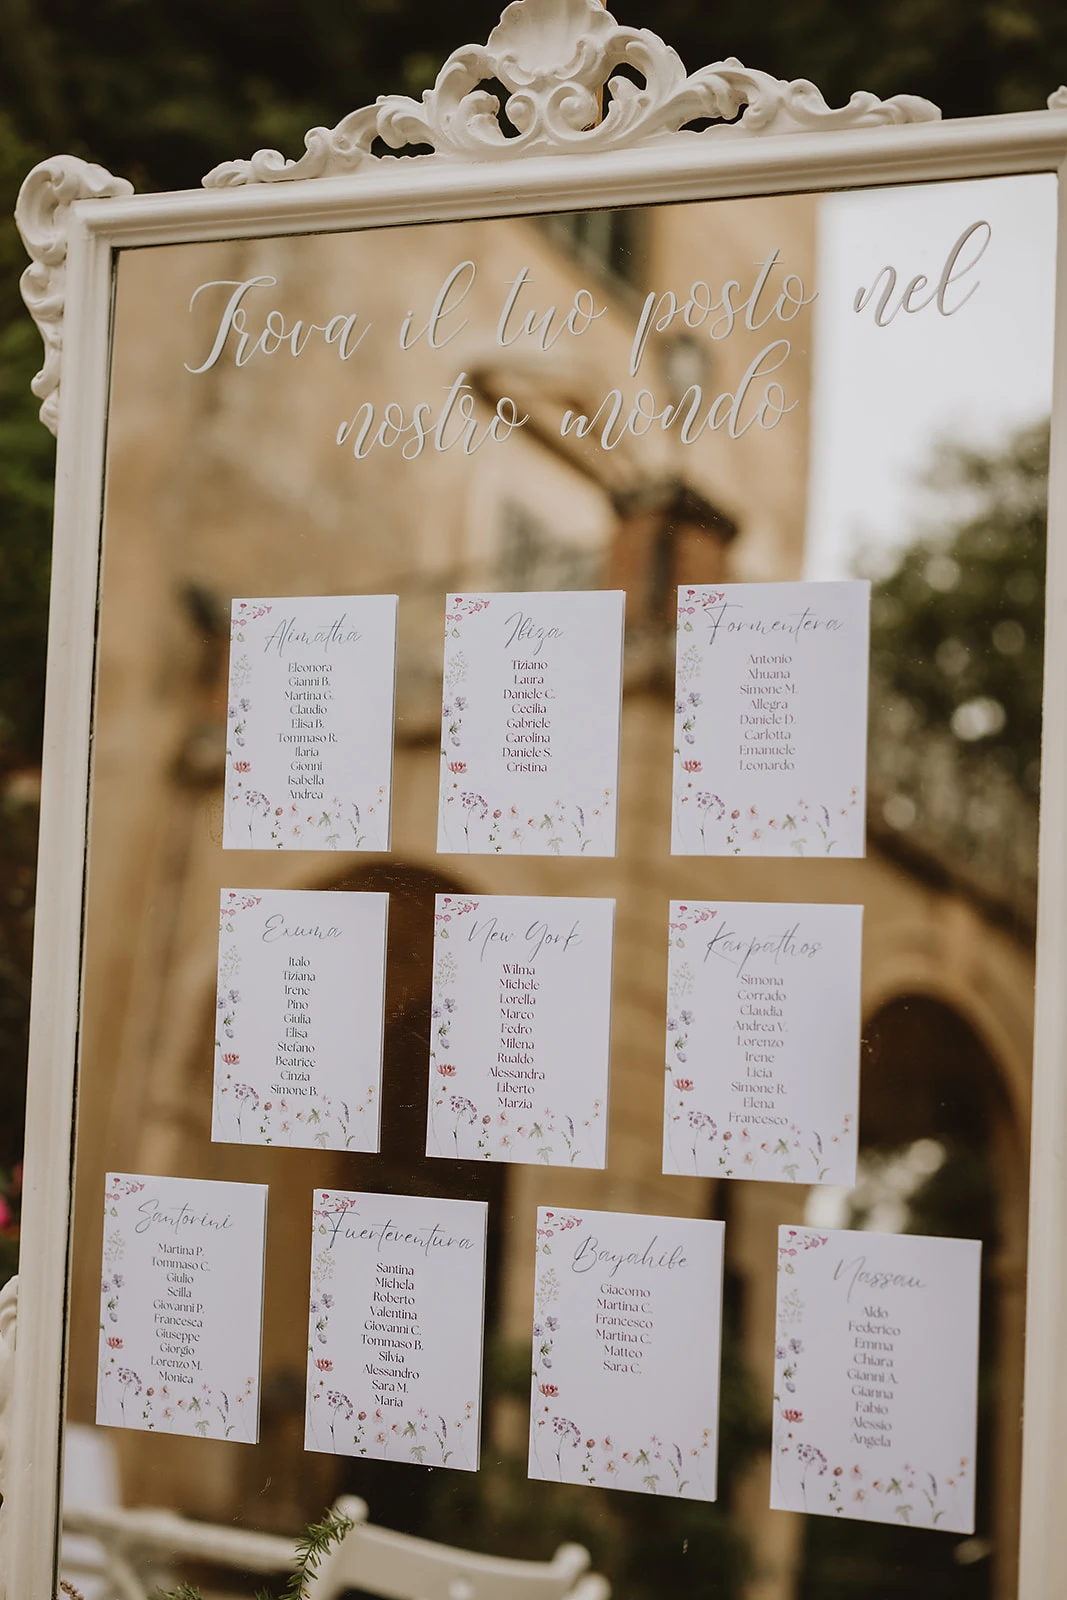 Trova il tuo posto nel
nostro mondo
Alimathà
Eleonora
Gianni B.
Martina G.
Claudio
Elisa B.
Tommaso R.
Ilaria
Gionni
Isabella
Andrea
Ibiza
Tiziano
Laura
Daniele C.
Cecilia
Gabriele
Carolina
Daniele S.
Cristina
Formentera
Antonio
Xhuana
Simone M.
Allegra
Daniele D.
Carlotta
Emanuele
Leonardo
Exuma
Italo
Tiziana
Irene
Pino
Giulia
Elisa
Stefano
Beatrice
Cinzia
Simone B.
New York
Wilma
Michele
Lorella
Marco
Fedro
Milena
Rualdo
Alessandra
Liberto
Marzia
Karpathos
Simona
Corrado
Claudia
Andrea V.
Lorenzo
Irene
Licia
Simone R.
Elena
Francesco
Santorini
Martina P.
Tommaso C.
Giulio
Scilla
Giovanni P.
Francesca
Giuseppe
Giorgio
Lorenzo M.
Monica
Fuerteventura
Santina
Michela
Roberto
Valentina
Giovanni C.
Tommaso B.
Silvia
Alessandro
Sara M.
Maria
Bayahibe
Giacomo
Martina C.
Francesco
Martina C.
Matteo
Sara C.
Nassau
Aldo
Federico
Emma
Chiara
Gianni A.
Gianna
Fabio
Alessio
Angela